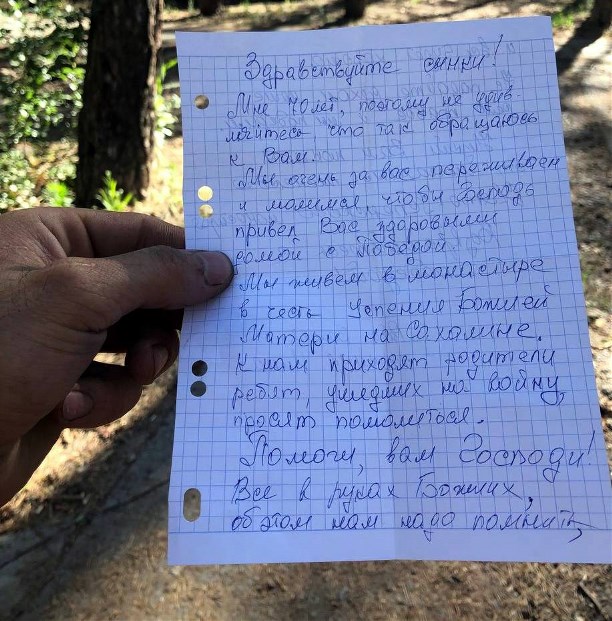 Здравствуйте сынки!
Мне 70 лет, поэтому не удив-
ляйтесь что так обращаюсь
к Вам.
Мы очень за вас переживаем
и молимся, чтобы Господь
привел Вас здоровыми
домой с Победой.
Мы живем в монастыре
в честь Успения Божией
Матери на Сахалине.
К нам приходят родители
ребят, ушедших на войну,
просят помолиться.
Помоги, вам Господи!
Все в руках Божиих,
об этом нам надо помнить,